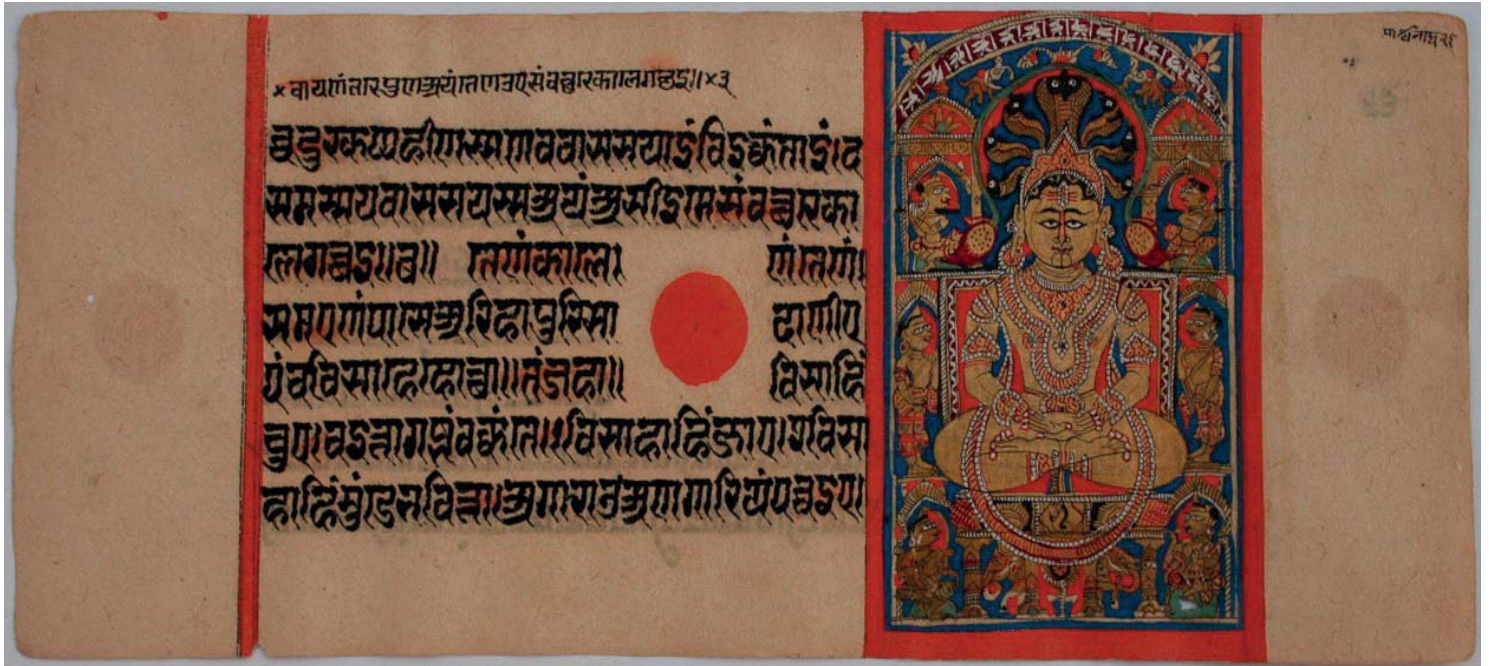 पार्श्वनाथ २६
×वायणंतरेपुणअयंतेणउएसंवच्छरेकालेगच्छइ॥×३
व्वदुक्खप्पहीणस्सणववाससयाइंविइक्कंताइं।द
समस्सयवाससयस्सअयंअसीइमेसंवच्छरेका
लेगच्छइ॥छ॥ तेणंकाले णं।तेणं।
समएणंपासेअरिहापुरिसा दाणीए
पंचविसाहेहोच्छा॥तंजहा॥ विसाहाहिं
चुए।चइत्तागब्भंवक्कंते।१विसाहाहिंजाए।२विसा
हाहिंमुंडेभवित्ता।अगाराउअणगारियंपव्वइए।